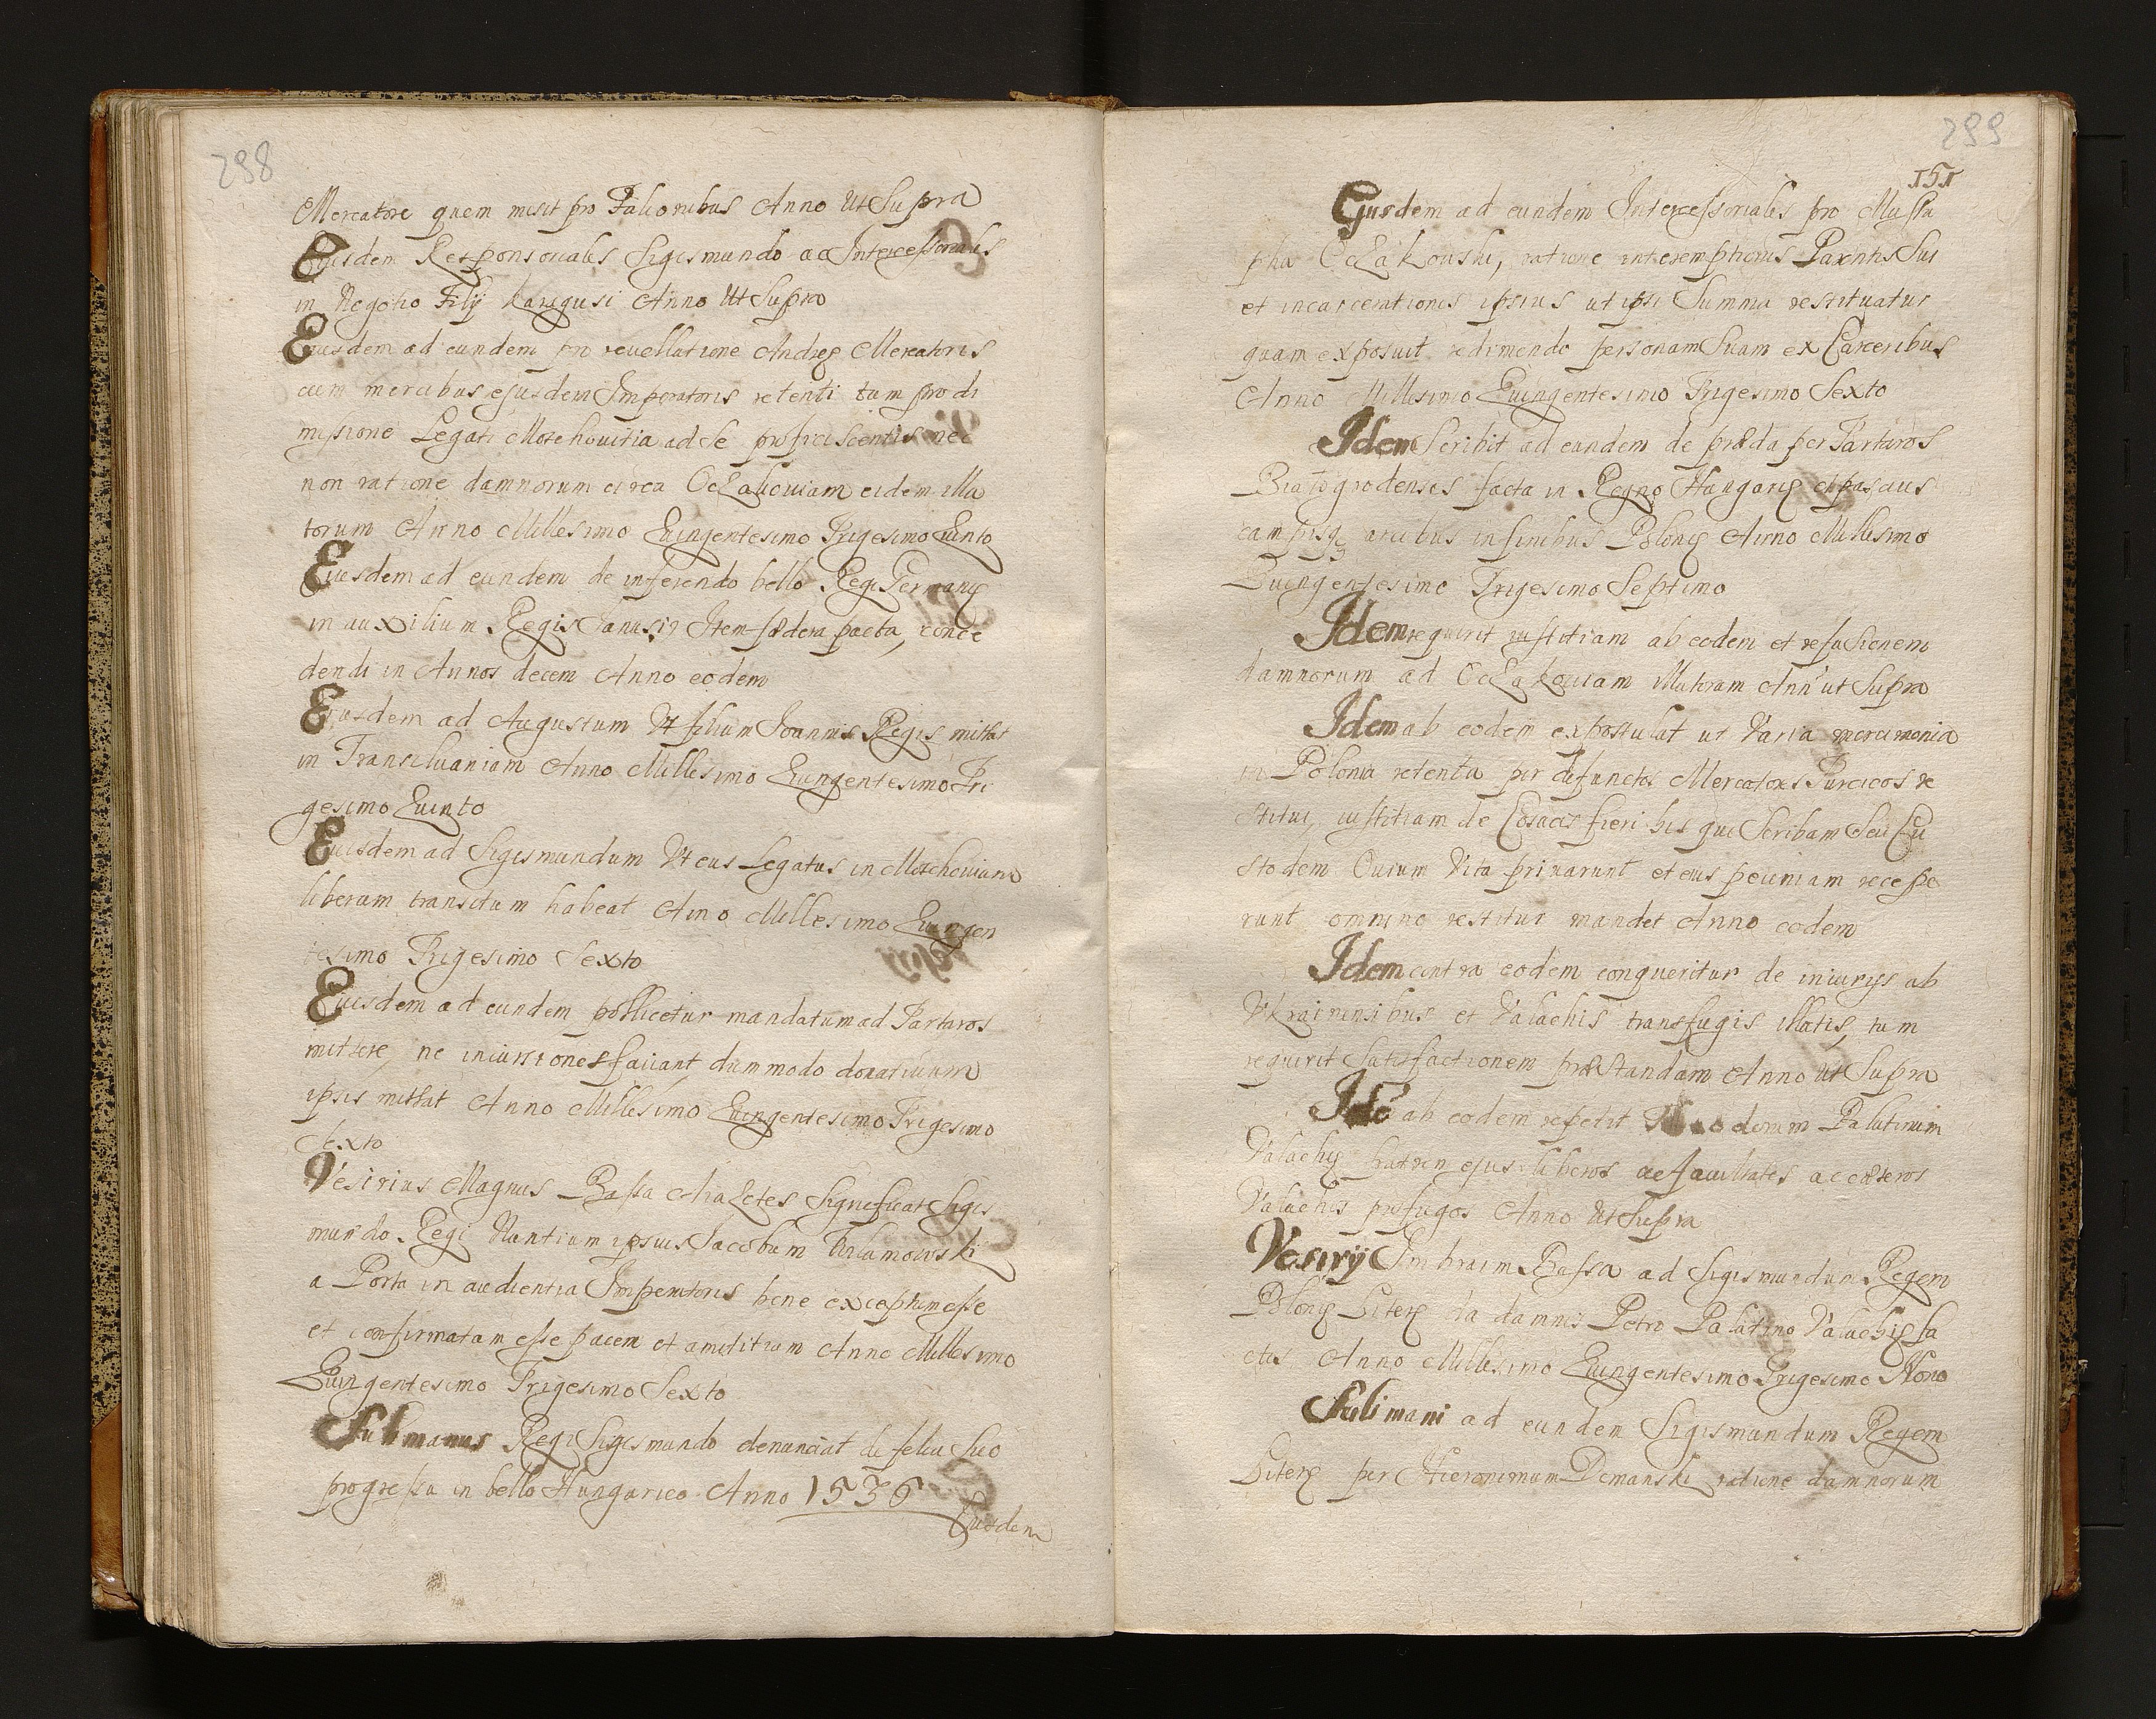 298
Mercatore quem misit pro Falionibus Anno Ut Supra
Eiusdem Responsoriales Sigismundo ad Intercessoriales
in Negotio Filij Karagusi Anno Ut Supra
Eiusdem ad eundem pro revellatione Andreę Mercatoris
cum mercibus ejusdem Imperatoris retenti tum pro di
missione Legati Moschovitia ad se proficiscentis nec
non ratione damnorum circa Oczakoviam eidem illa
torum Anno Millesimo Quingentesimo Trigesimo Quinto
Eiusdem ad eundem de inferendo bello Regi Germanę
in auxilium Regis Janusij Item fœdera pacta, conce
dendi in Annos decem Anno eodem
Eiusdem ad Augustum Vt filium Joannis Regis mittat
in Transiluaniam Anno Millesimo Quingentesimo Tri
gesimo Quinto
Eiusdem ad Sigismundum Vt eius Legatus in Moschouiam
liberum transitum habeat Anno Millesimo Quingen
tesimo Trigesimo Sexto
Eiusdem ad eundem pollicetur mandatum ad Tartaros
mittere, ne incursiones faciant dummodo donatiuum
ipsis mittat Anno Millesimo Quingentesimo Trigesimo
Sexto
Vesirius Magnus Bassa Significat Sigis
mundo Regi Nuntium ipsius Jacobum
a Porta in audientia Imperatoris bene exceptum esse
et confirmatam esse pacem et amicitiam Anno Millesimo
Quingentesimo Trigesimo Sexto
Sulimanus Regi Sigismundo denunciat de felici Suo
progressu in bello Hungarico Anno 1536
Eiusdem
299
151
Eiusdem ad eundem Intercessoriales pro Musta
pha Oczakouski, ratione interemptionis Parentis Sui
et incarcerationis ipsius ut ipsi Summa restituatur
quam exposuit redimendo personam Suam ex Carceribus
Anno Millesimo Quingentesimo Trigesimo Sexto
Idem Scribit ad eundem de præda per Tartaros
Białogrodenses facta in Regno Hungarię et pascuis
campisq; arcibus in finibus Polonię Anno Millesimo
Quingentesimo Trigesimo Septimo
Idem requirit iustitiam ab eodem et refusionem
damnorum ad Oczakouiam illatorum Anno ut Supra
Idem ab eodem expostulat ut Varia mercimonia
in Polonia retenta per defunctos Mercatores Turcicos re
stitui, iustitiam de Cosacis fieri his qui Scribam Seu Cu
stodem Ouium Vita priuarunt et eius pecuniam recepe
runt omnino restitui mandet Anno eodem
Idem contra eodem conqueritur de iniurijs ab
Vkrainensibus et Valachis transfugis illatis, tum
requirit Satisfactionem præstandam Anno Ut Supra
Idē ab eodem repetit Palatinum
Valachię fratrem ejus liberos ac facultates ac cæteros
Valachis profugos Anno Ut Supra
Vesirij Imbraim Bassa ad Sigismundum Regem
Polonię Literę da damnis Petro Palatino Valachię fa
ctis Anno Millesimo Quingentesimo Trigesimo Nono
Sulimani ad eundem Sigismundum Regem
Literę per Hieronimum Domanski ratione damnorum